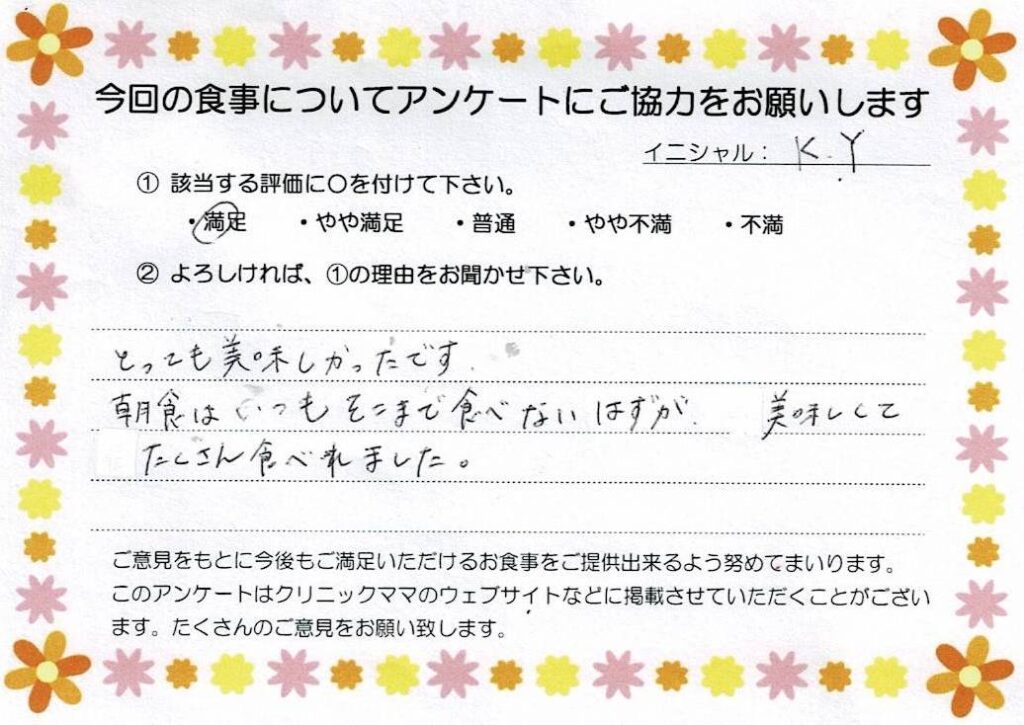 今回の食事についてアンケートにご協力をお願いします
イニシャル： K.Y
① 該当する評価に〇を付けて下さい。
・満足 ・やや満足 ・普通 ・やや不満 ・不満
② よろしければ、①の理由をお聞かせ下さい。
とっても美味しかったです.
朝食はいつもそこまで食べないはずが. 美味しくて
たくさん食べれました。
ご意見をもとに今後もご満足いただけるお食事をご提供出来るよう努めてまいります。
このアンケートはクリニックママのウェブサイトなどに掲載させていただくことがござい
ます。たくさんのご意見をお願い致します。